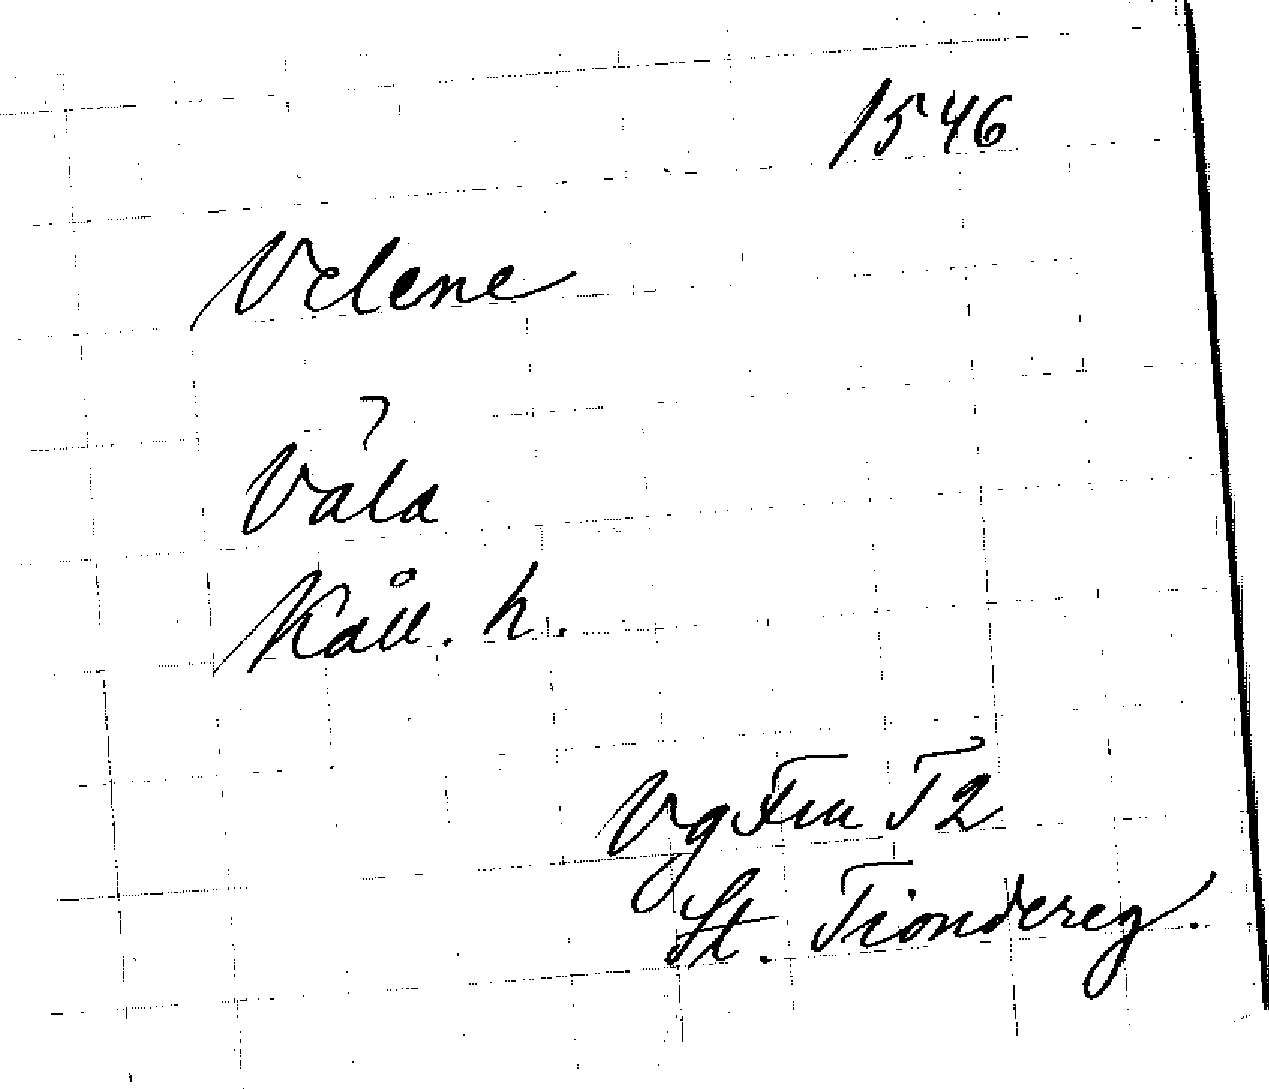 1546
Velene
?
Våla
Kåll. h.
Vg Fru T2
St. Tiondereg.